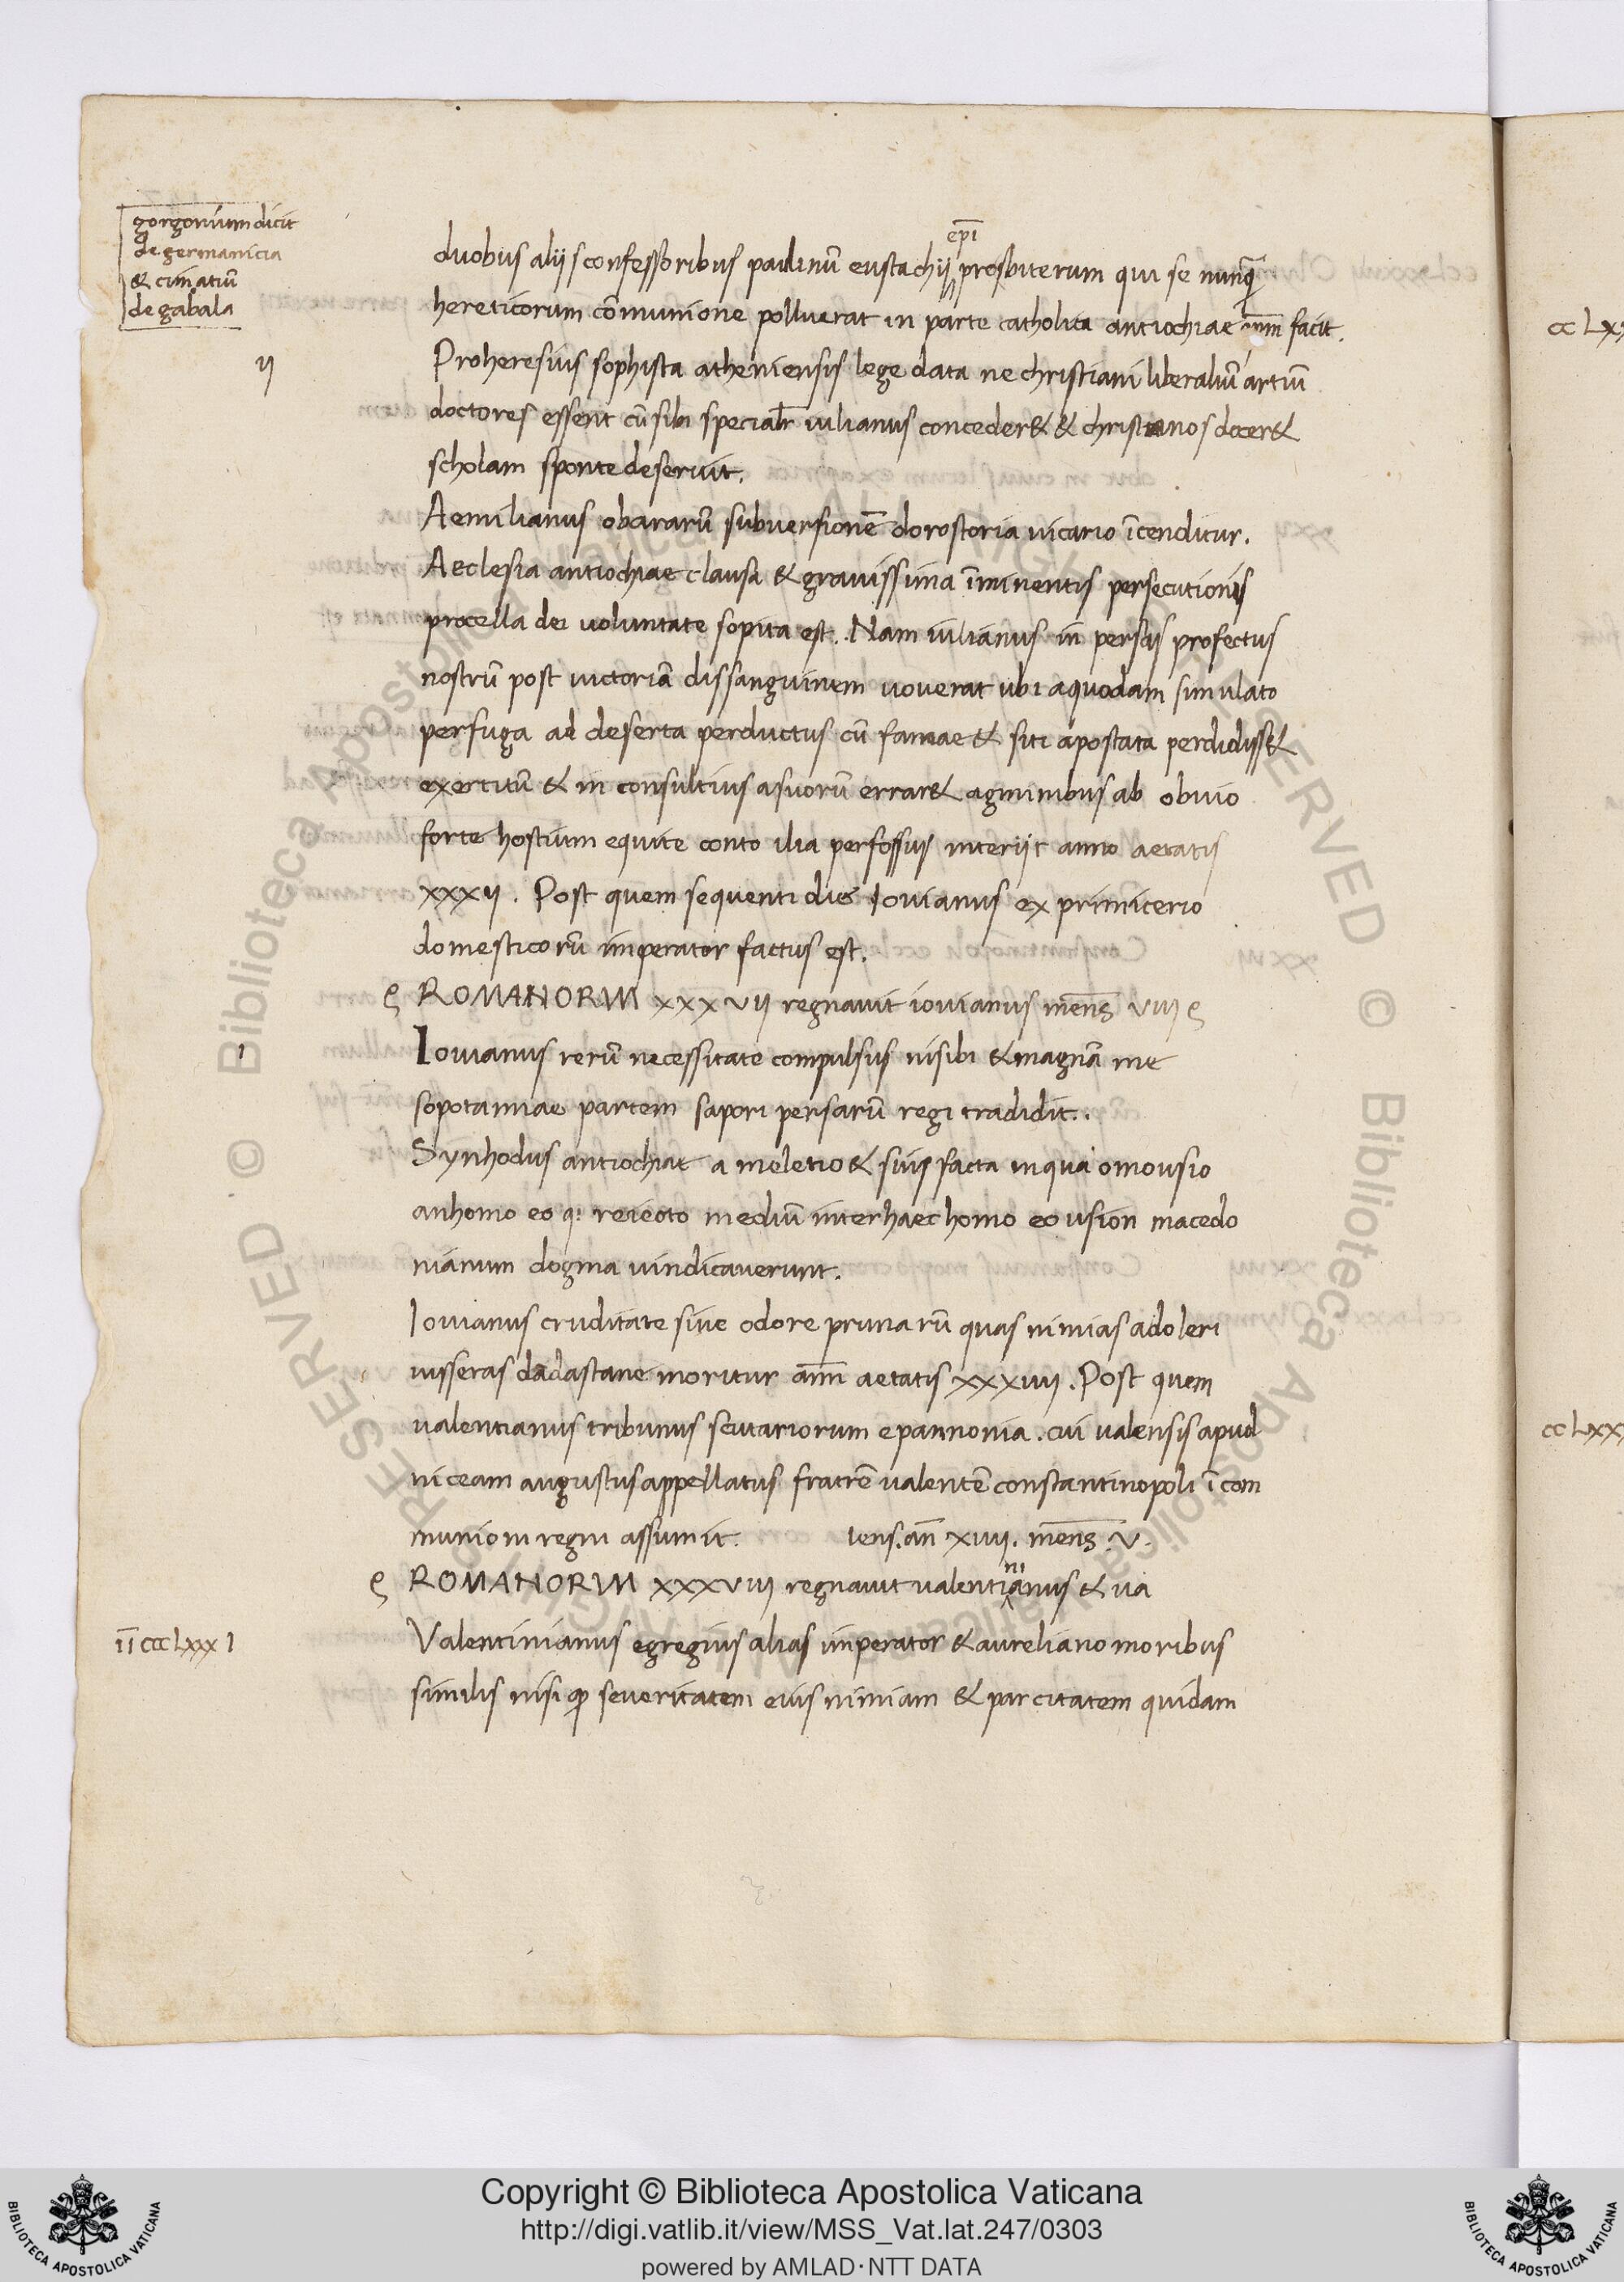 gorgonium dicit
de germanicia
& cimatiū
de gabala
duobus aliis confessoribus paulinū eustachii epī presbiterum qui se nunq̄
hereticorum cōmunione polluerat in parte catholica antiochiae facit.
ii
Proheresius sophista atheniensis lege data ne christiani liberaliū artiū
doctores essent cū sibi specialr̄ iulianus conceder& & christianos docer&
scholam sponte deseruit.
Aemilianus obararū subuersionē dorostoria uicario īcenditur.
Aeclesia antiochiae clausa & grauissima īminentis persecutionis
procella dei uoluntate sopita est. Nam iulianus in persiis profectus
nostrū post uictoriā dis sanguinem uouerat ubi a quodam simulato
perfuga ad deserta perductus cū famae & siti apostata perdidiss&
exercitū & in consultius a suorū errar& agminibus ab obuio
forte hostium equite conto ilia perfossus interiit anno aetatis
xxxii. Post quem sequenti die iouianus ex primicerio
domesticorū imperator factus est.
ROMANORUM xxxvii regnauit iouianus mens̄ viii
i
Iouianus rerū necessitate compulsus nisibi & magnā me
sopotamiae partem sapori persarū regi tradidit.
Synhodus antiochiae a meletio & suis facta in qua omousio
anhomo eo q: reiecto mediū inter haec homo eo usion macedo
nianum dogma uindicauerunt.
Iouianus cruditate siue odore prunarū quas nimias adoleri
iusseras dadastane moritur ann̄ aetatis xxxiiii. Post quem
ualentianus tribunus scutariorum e pannonia. cui ualensis apud
niceam augustus appellatus fratrē ualentē constantinopoli ī com
muniom regni assumit. lens. an̄ xiiii. mens̄. v.
ROMANORUM xxxviii regnauit ualentinianus & ua
īīccclxxxi
Valentinianus egregius alias imperator & aureliano moribus
similis nisi qp seueritatem eius nimiam & parcitatem quidam
cc Lxx
cc Lxxx
Copyright © Biblioteca Apostolica Vaticana
http://digi.vatlib.it/view/MSS_Vat.lat.247/0303
powered by AMLAD·NTT DATA
BIBLIOTECA APOSTOLICA VATICANA
BIBLIOTECA APOSTOLICA VATICANA